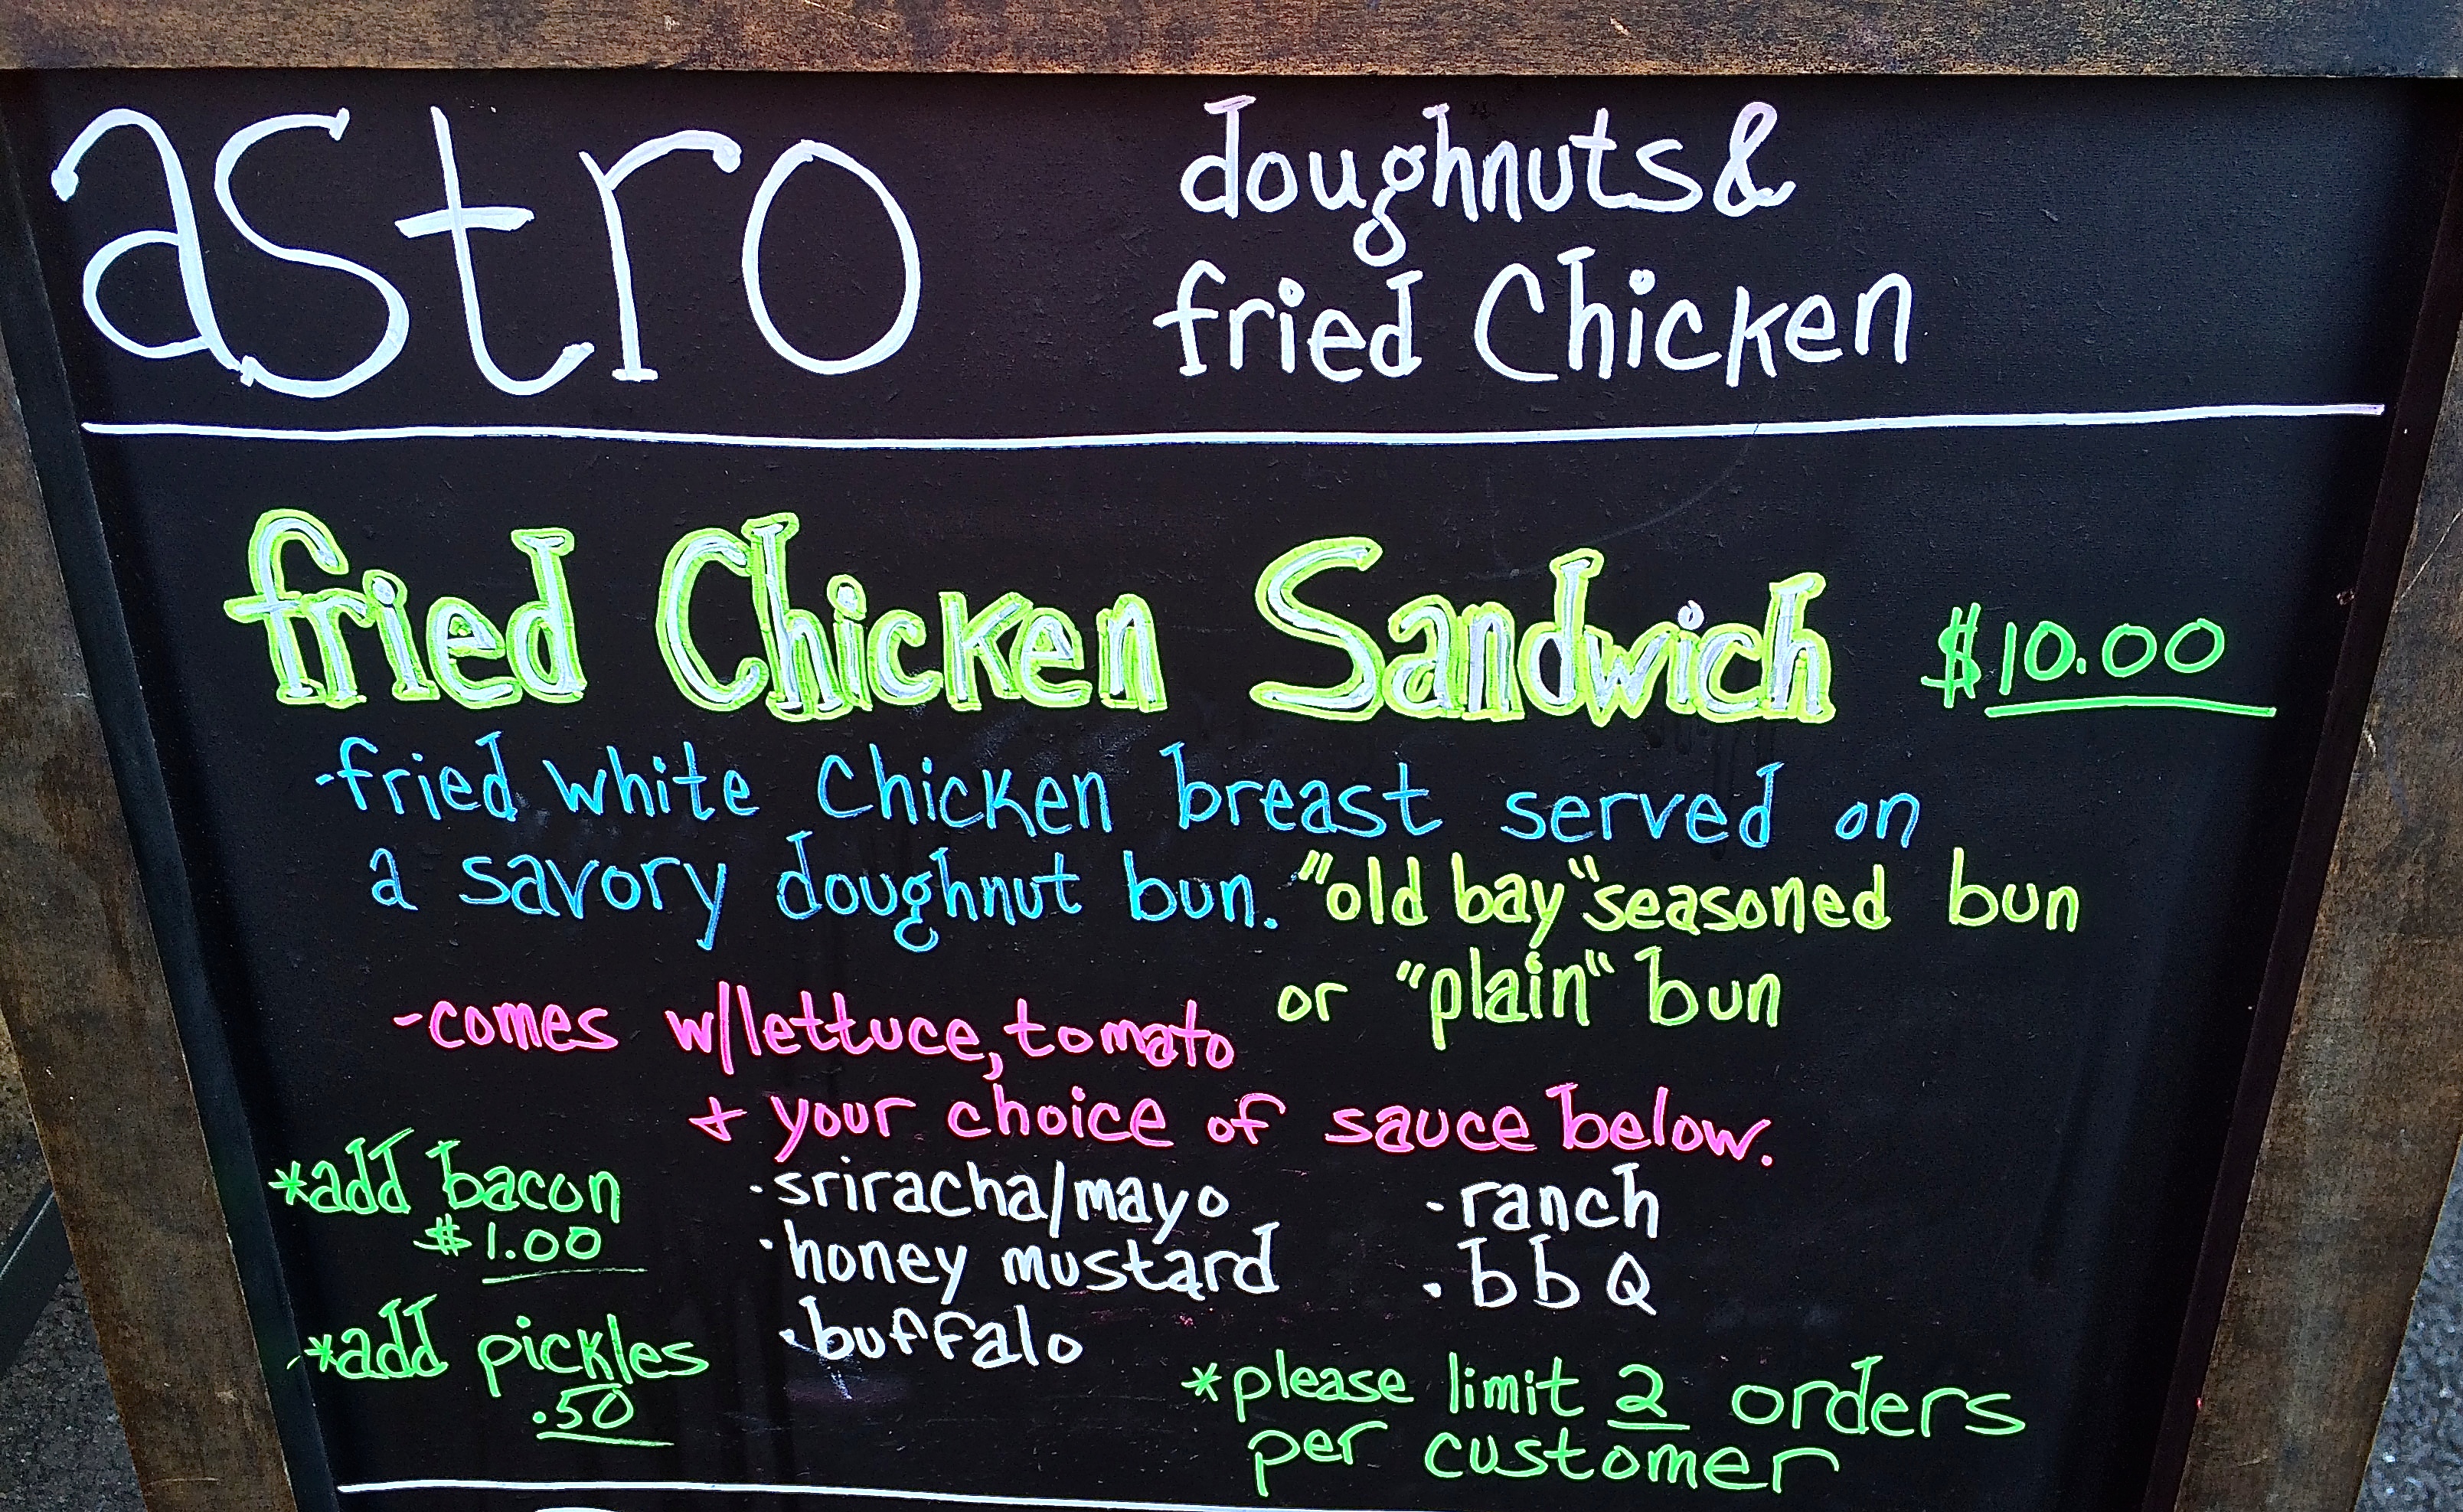 astro
doughnuts &
fried Chicken
fried Chicken Sandwich $10.00
-fried white Chicken breast served on
a savory doughnut bun. "old bay" seasoned bun
or "plain" bun
-comes w/lettuce, tomato
+ your choice of sauce below.
*add bacon
$1.00
*add pickles
.50
·sriracha/mayo
·honey mustard
·buffalo
·ranch
·bbQ
*please limit 2 orders
per customer